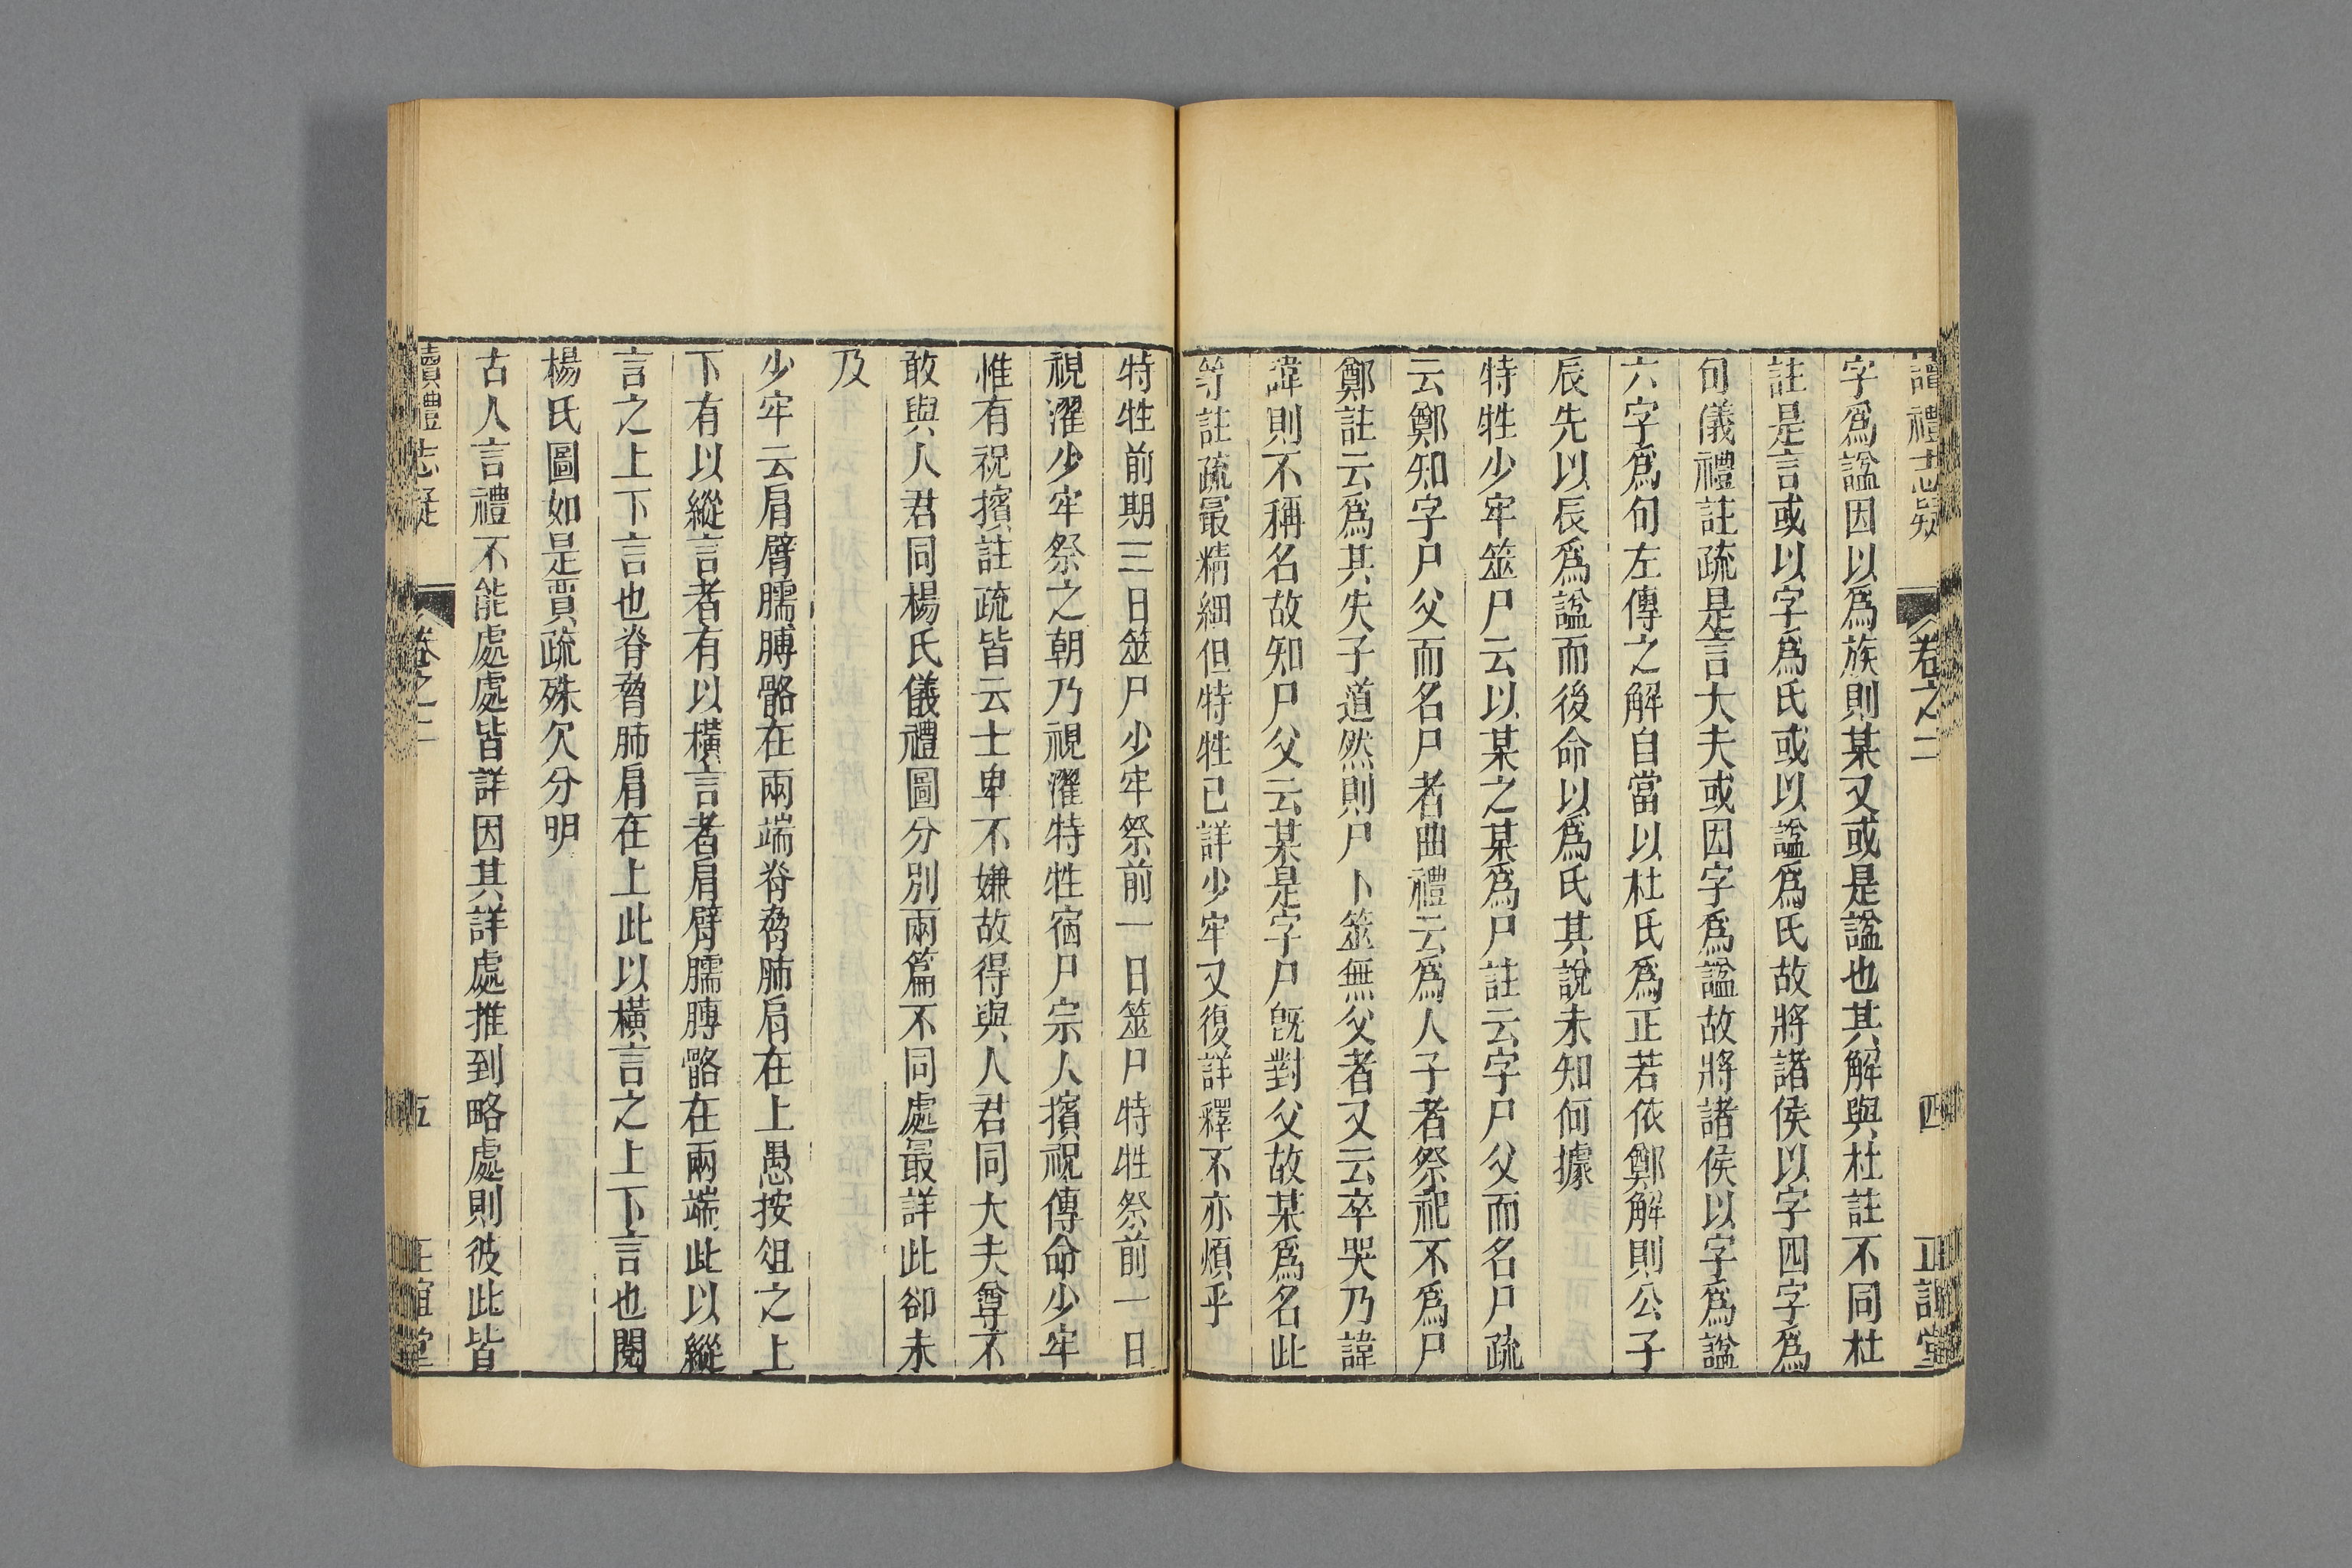 讀禮志疑 卷之二 四 正誼堂
字爲諡因以爲族則某又或是諡也其解與杜註不同杜
註是言或以字爲氏或以諡爲氏故將諸侯以字四字爲
句儀禮註疏是言大夫或因字爲諡故將諸侯以字爲諡
六字爲句左傳之解自當以杜氏爲正若依鄭解則公子
辰先以辰爲諡而後命以爲氏其說未知何據
特牲少牢筮尸云以某之某爲尸註云字尸父而名尸疏
云鄭知字尸父而名尸者曲禮云爲人子者祭祀不爲尸
鄭註云爲其失子道然則尸卜筮無父者又云卒哭乃諱
諱則不稱名故知尸父云某是字尸旣對父故某爲名此
等註疏最精細但特牲已詳少牢又復詳釋不亦煩乎
特牲前期三日筮尸少牢祭前一日筮尸特牲祭前一日
視濯少牢祭之朝乃視濯特牲宿尸宗人擯祝傳命少牢
惟有祝擯註疏皆云士卑不嫌故得與人君同大夫尊不
敢與人君同楊氏儀禮圖分別兩篇不同處最詳此卻未
及
少牢云肩臂臑膞骼在兩端脊脅肺肩在上愚按俎之上
下有以縱言者有以橫言者肩臂臑膞骼在兩端此以縱
言之上下言也脊脅肺肩在上此以橫言之上下言也閱
楊氏圖如是賈疏殊欠分明
古人言禮不能處處皆詳因其詳處推到略處則彼此皆
讀禮志疑 卷之二 五 正誼堂